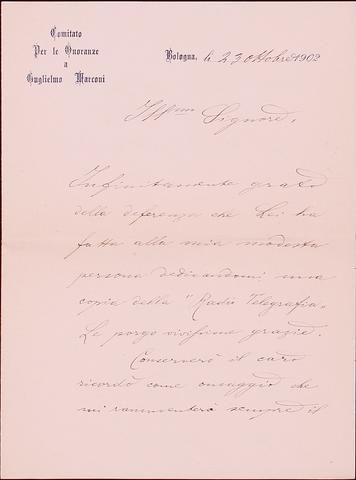 Comitato
Per le Onoranze
a
Guglielmo Marconi
Bologna, li 23 ottobre 1902
Ill.mo Signore,
Infinitamente grato
della deferenza che Lei ha
fatta alla mia modesta
persona dedicandomi una
copia della "Radio Telegrafia"
Le porgo vivissime grazie.
Conserverò il caro
ricordo come omaggio che
mi rammenterà sempre il